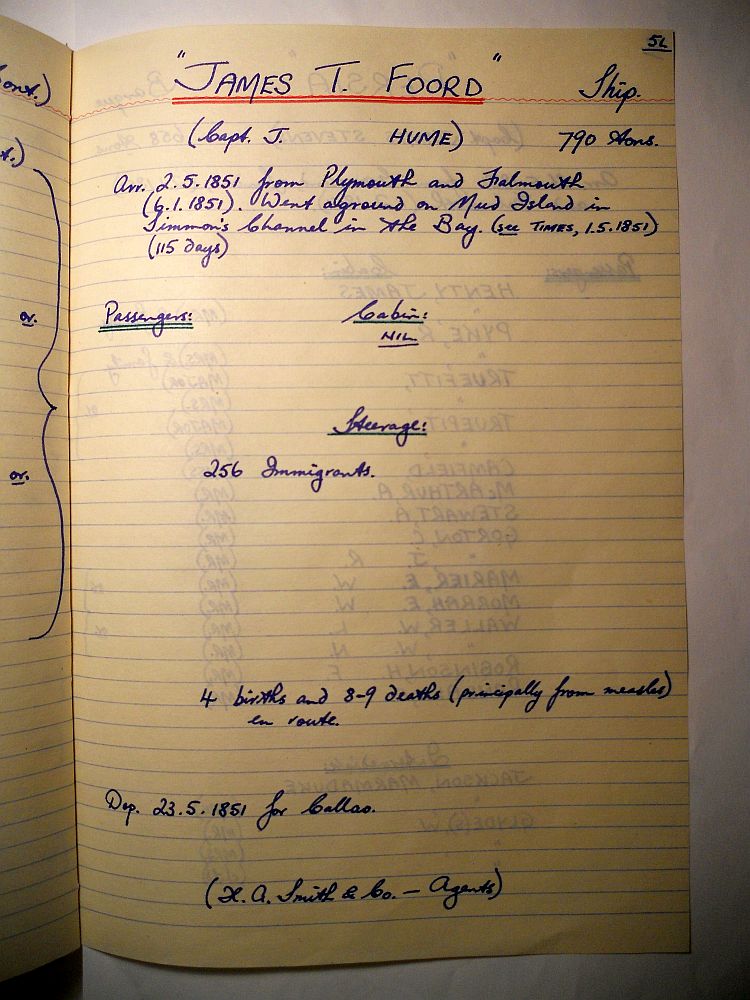 52
"JAMES T. FOORD" Ship.
(Capt. J. HUME) 790 tons.
Arr. 2.5.1851 from Plymouth and Falmouth
(6.1.1851). Went aground on Mud Island in
Simmon's Channel in the Bay. (see TIMES, 1.5.1851)
(115 days)
Passengers: Cabin:
NIL
Steerage:
256 Immigrants.
4 births and 8-9 deaths (principally from measles)
en route.
Dep. 23.5.1851 for Callao.
(H. A. Smith & Co. — Agents)
cont.)
t.)
or.
or.